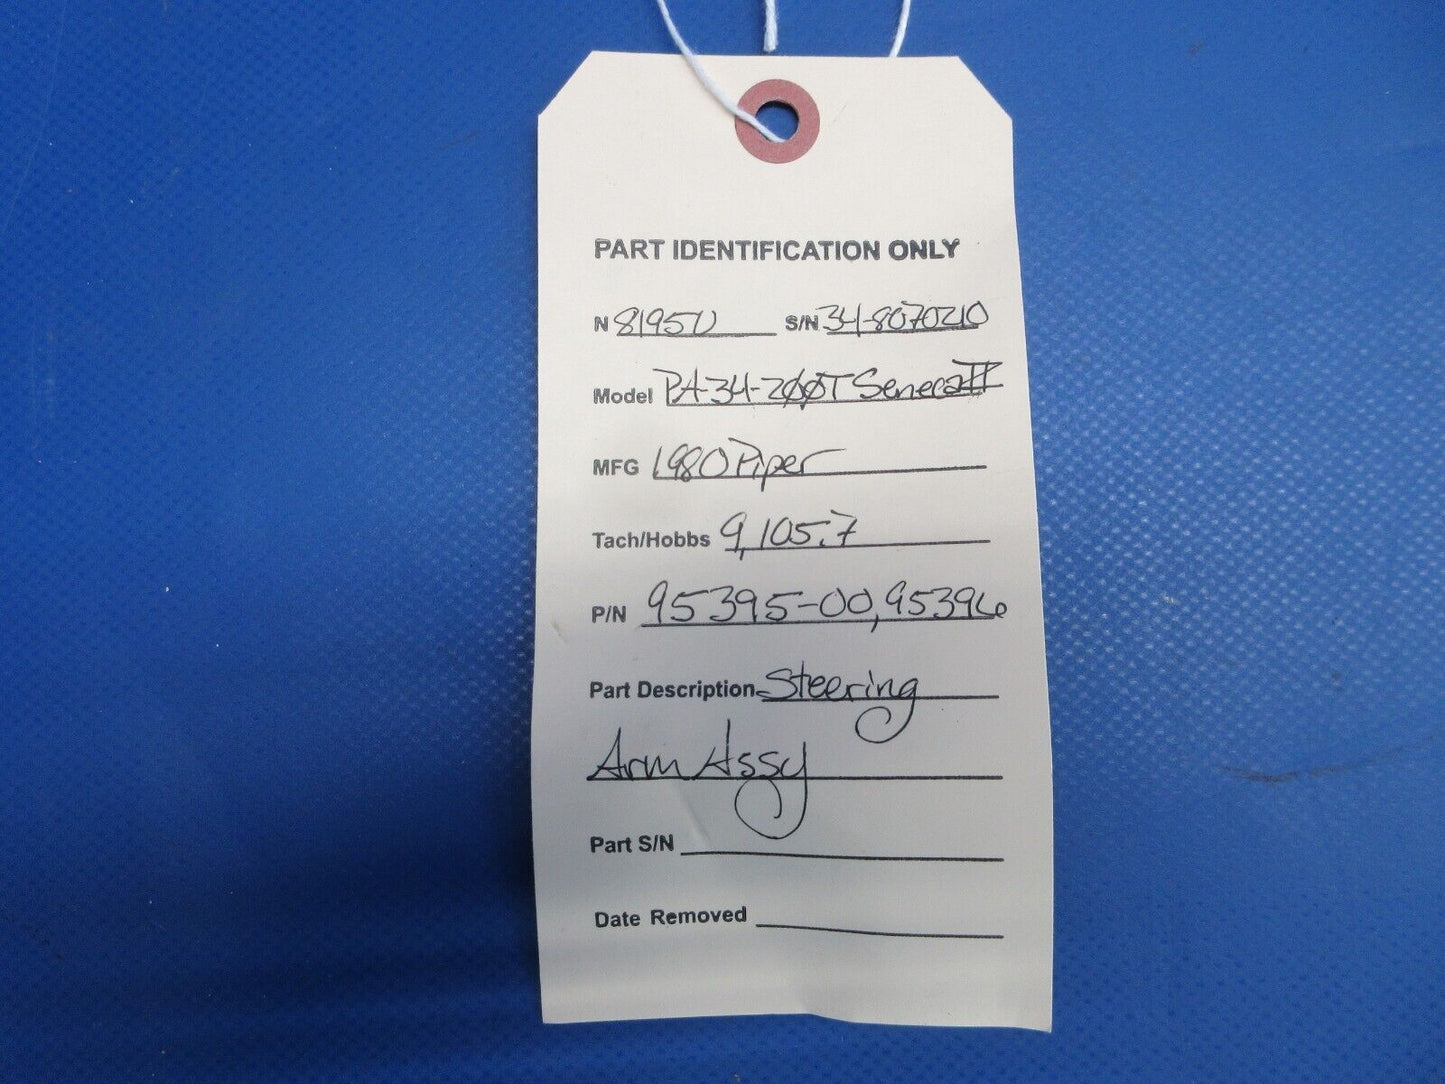 PART IDENTIFICATION ONLY
N 8195U S/N 34-8070210
Model PA-34-200T Seneca II
MFG 1980 Piper
Tach/Hobbs 9,105.7
P/N 95395-00, 95396
Part Description Steering
Arm Assy
Part S/N
Date Removed